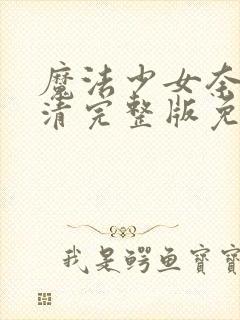 魔法少女奈
清完整版免
我是鳄鱼宝宝